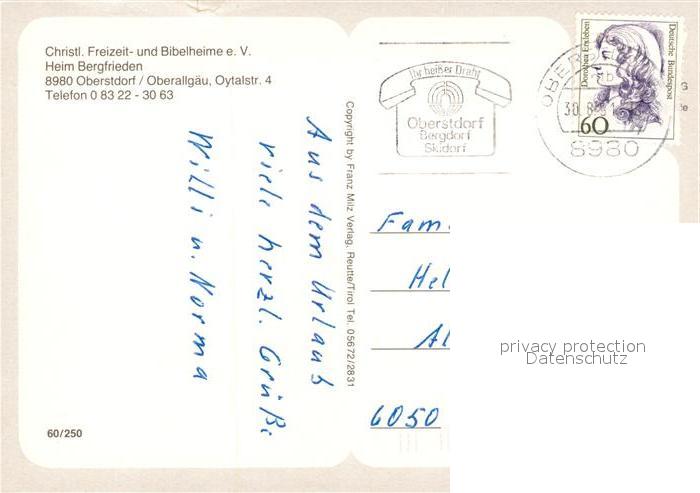 Christl. Freizeit- und Bibelheime e. V.
Heim Bergfrieden
8980 Oberstdorf / Oberallgäu, Oytalstr. 4
Telefon 0 83 22 - 30 63
Aus dem Urlaub
viele herzl. Grüße
Willi u. Norma
60/250
Copyright by Franz Milz Verlag, Reutte/Tirol Tel. 05672/2831
Ihr heißer Draht
Oberstdorf
Bergdorf
Skidorf
8980
Dorothea Erxleben
Deutsche Bundespost
60
Fam.
Hel
Al
6050
privacy protection
Datenschutz